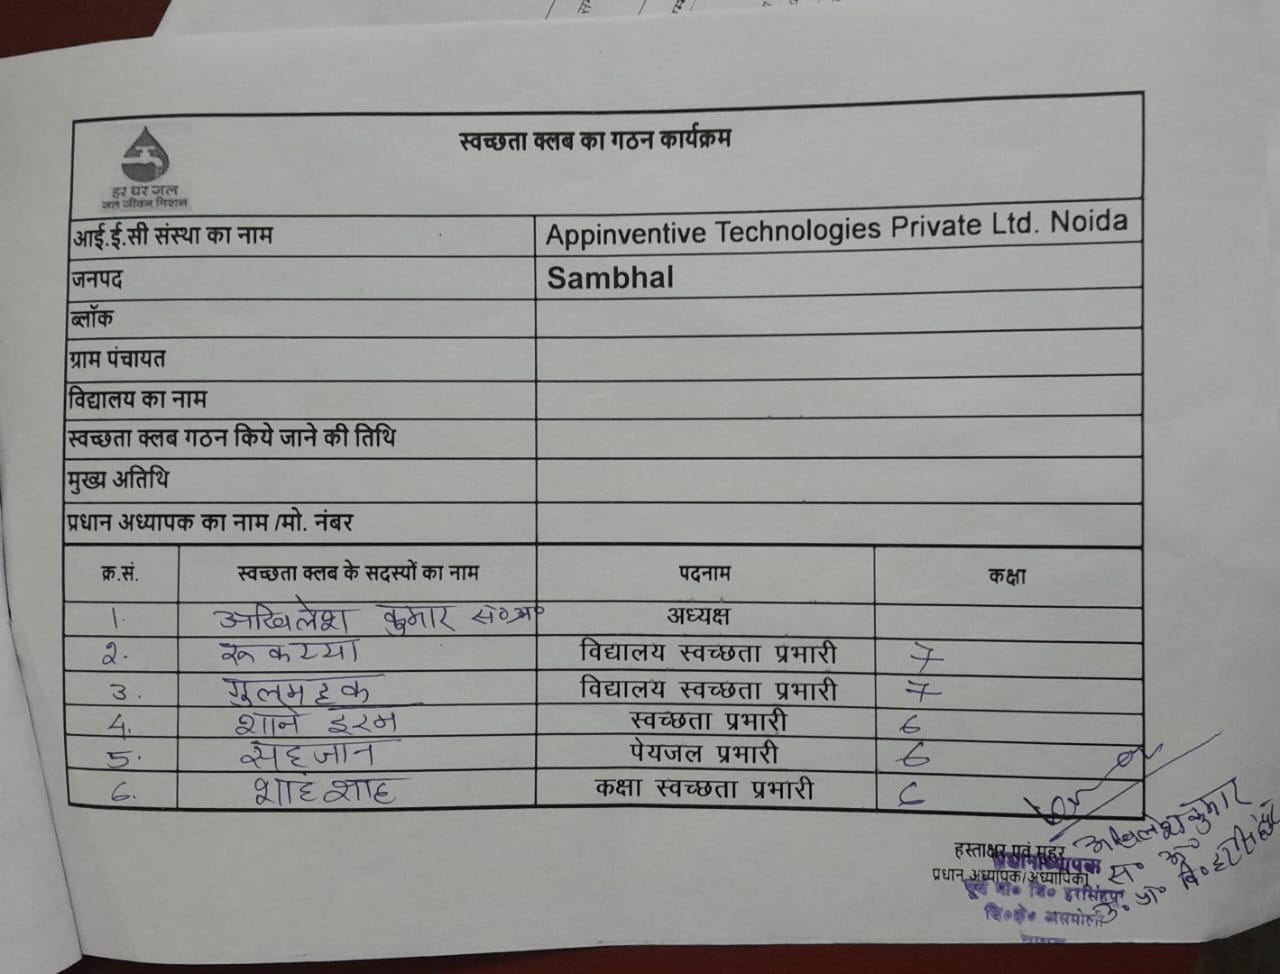 स्वच्छता क्लब का गठन कार्यक्रम
हर घर जल
जल जीवन मिशन
आई.ई.सी संस्था का नाम Appinventive Technologies Private Ltd. Noida
जनपद Sambhal
ब्लॉक
ग्राम पंचायत
विद्यालय का नाम
स्वच्छता क्लब गठन किये जाने की तिथि
मुख्य अतिथि
प्रधान अध्यापक का नाम /मो. नंबर
क्र.सं. स्वच्छता क्लब के सदस्यों का नाम पदनाम कक्षा
1. अखिलेश कुमार स०अ० अध्यक्ष
2. रूकय्या विद्यालय स्वच्छता प्रभारी 7
3. गुलमहक विद्यालय स्वच्छता प्रभारी 7
4. शाने इरम स्वच्छता प्रभारी 6
5. सहजान पेयजल प्रभारी 6
6. शाहंशाह कक्षा स्वच्छता प्रभारी 6
अखिलेश कुमार
हस्ताक्षर एवं मुहर
प्रधानाध्यापक
स० अ०
प्रधान अध्यापक/अध्यापिका
वि० असमोली